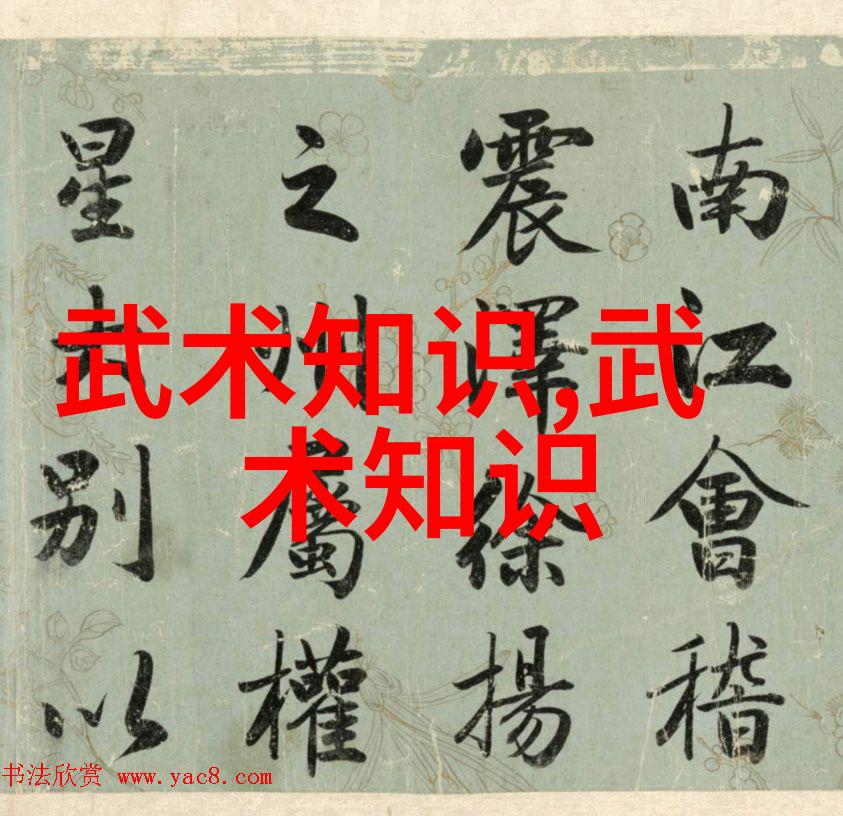 南江會稽
震澤徐揚
之州屬權
星别以
武术知识,武
术知识
书法欣赏 www.yac8.com